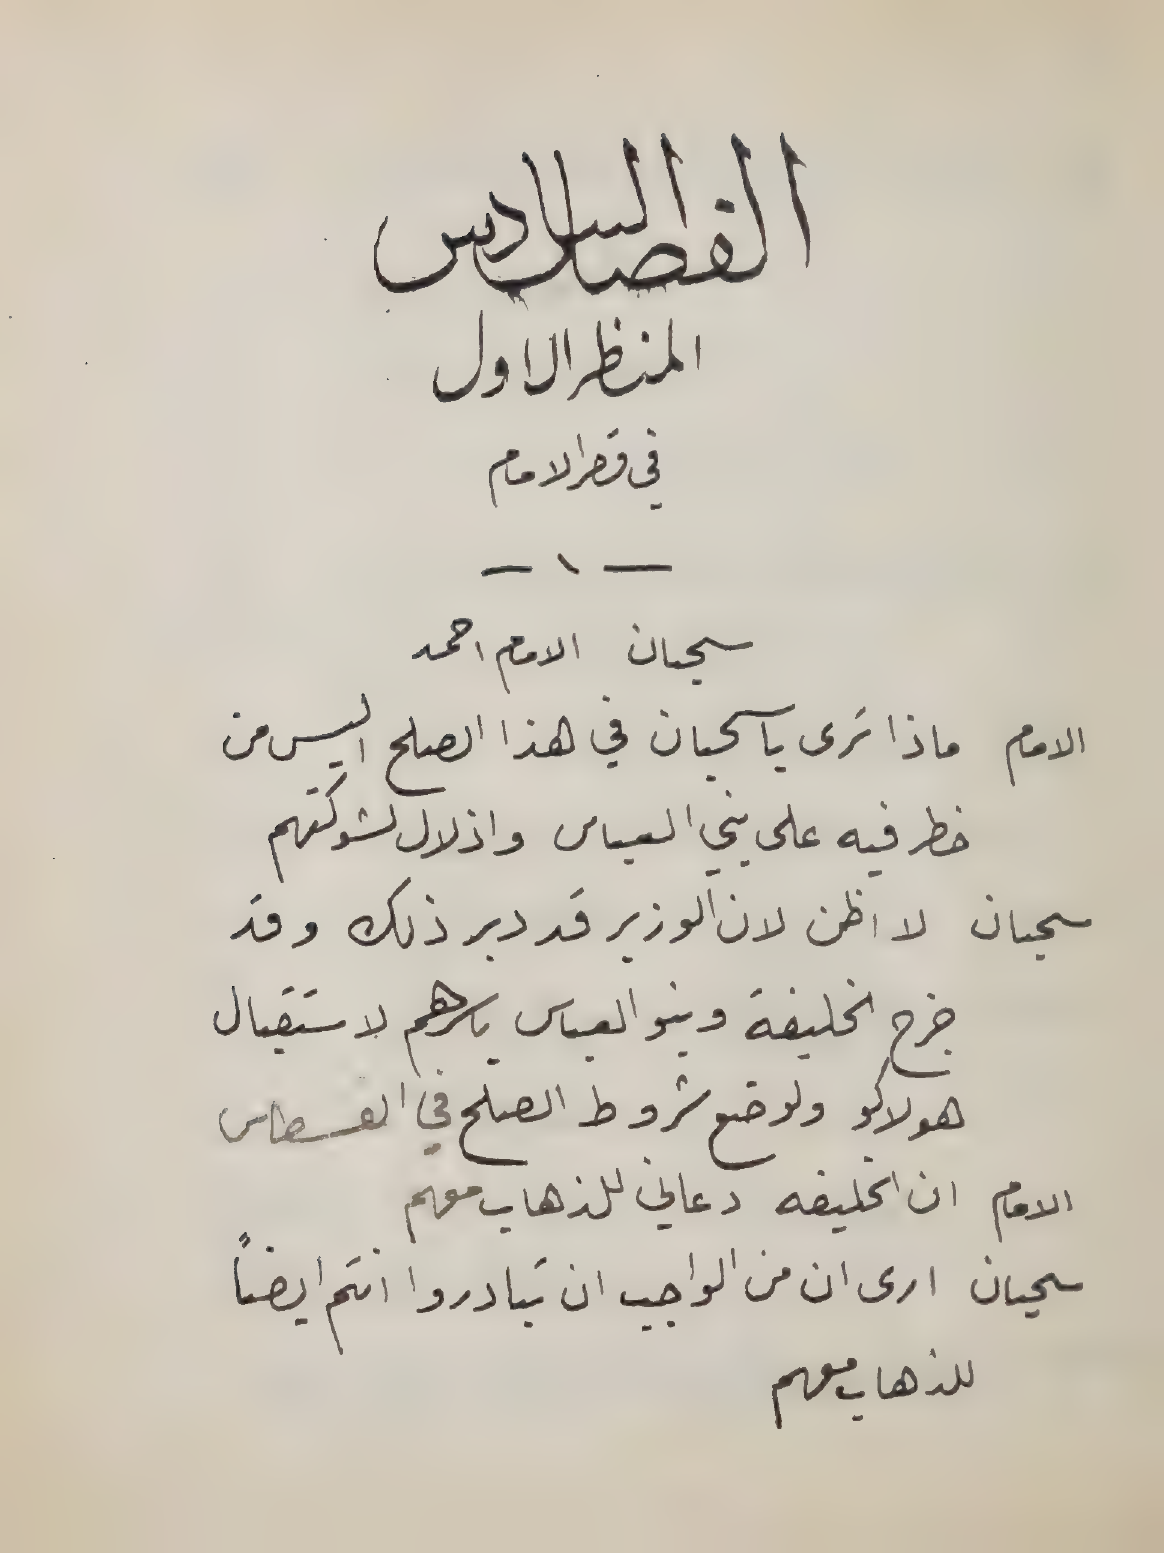 الفصل السادس
المنظر الاول
في قصر الامام
— ١ —
سحبان الامام احمد
الامام ماذا ترى يا سحبان في هذا الصلح اليس من
خطر فيه على بني العباس واذلال لشوكتهم
سحبان لا اظن لان الوزير قد دبر ذلك وقد
خرج الخليفة وبنو العباس باسرهم لاستقبال
هولاكو ولوضع شروط الصلح في الفسطاس
الامام ان الخليفه دعاني للذهاب معهم
سحبان ارى ان من الواجب ان تبادروا انتم ايضاً
للذهاب معهم